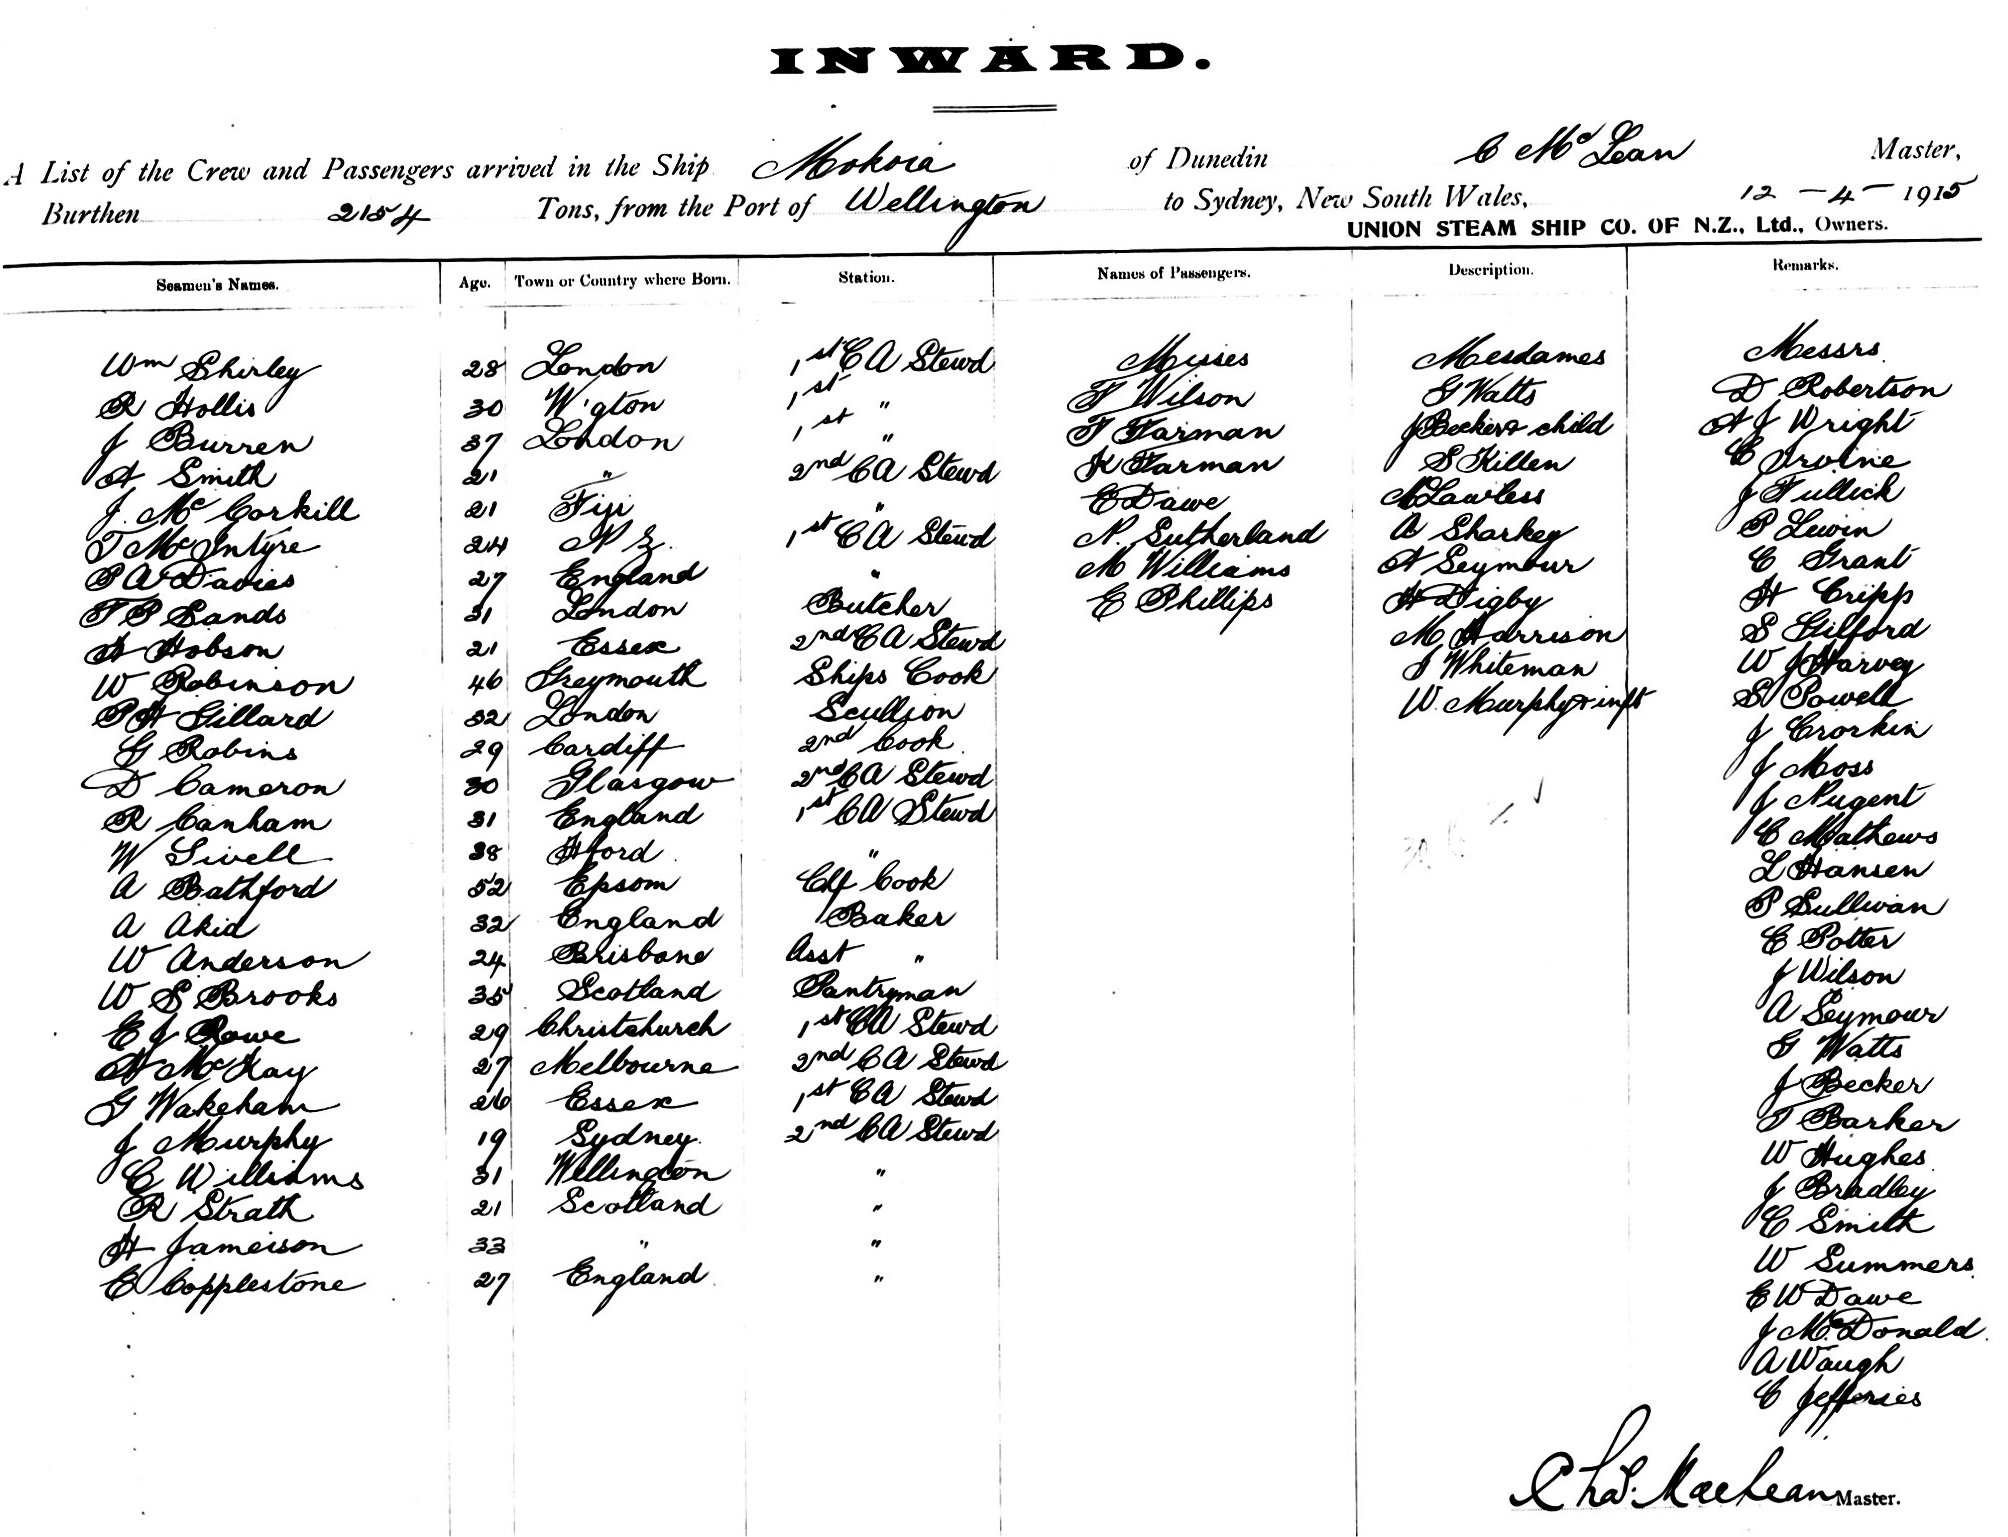 INWARD.
A List of the Crew and Passengers arrived in the Ship Mokoia of Dunedin C McLean Master,
Burthen 2154 Tons, from the Port of Wellington to Sydney, New South Wales, 12 - 4 - 1915
UNION STEAM SHIP CO. OF N.Z., Ltd., Owners.
Seamen's Names. Age. Town or Country where Born. Station. Names of Passengers. Description. Remarks.
Wm Shirley 28 London 1st CA Stewd Misses Mesdames Messrs
R Hollis 30 W'gton 1st " F Wilson G Watts D Robertson
J Burren 37 London 1st " F Farman J Becker & child A J Wright
A Smith 21 " 2nd CA Stewd K Farman S Killen C Irvine
J. McCorkill 21 Fiji " E Dawe Lawless J Tullick
T McIntyre 24 N Z. 1st CA Stewd N. Sutherland A Sharkey P Lewin
P A Davies 27 England " M Williams A Seymour C Grant
F P Sands 31 London Butcher E Phillips H Digby H Cripp
H Hobson 21 Essex 2nd CA Stewd M Harrison S Gilford
W Robinson 46 Greymouth Ships Cook I Whiteman W J Harvey
P H Gillard 32 London Scullion W. Murphy & inft S Powell
G Robins 29 Cardiff 2nd Cook J Crorkin
D Cameron 30 Glasgow 2nd CA Stewd J Moss
R Canham 31 England 1st CA Stewd J Nugent
W Sivell 38 Ilford " C Mathews
A Bathford 52 Epsom Chf Cook L Hansen
A Akid 32 England Baker P Sullivan
W Anderson 24 Brisbane Asst " E Potter
W S Brooks 35 Scotland Pantryman J Wilson
E J Rowe 29 Christchurch 1st CA Stewd A Seymour
H McKay 27 Melbourne 2nd CA Stewd G Watts
G Wakeham 26 Essex 1st CA Stewd J Becker
J Murphy 19 Sydney. 2nd CA Stewd T Barker
C Williams 31 Wellington " W Hughes
R Strath 21 Scotland " J Bradley
H Jameison 33 " " C Smith
E Copplestone 27 England " W Summers
E W Dawe
J McDonald
A Waugh
C Jefferies
Chas. MacLean Master.